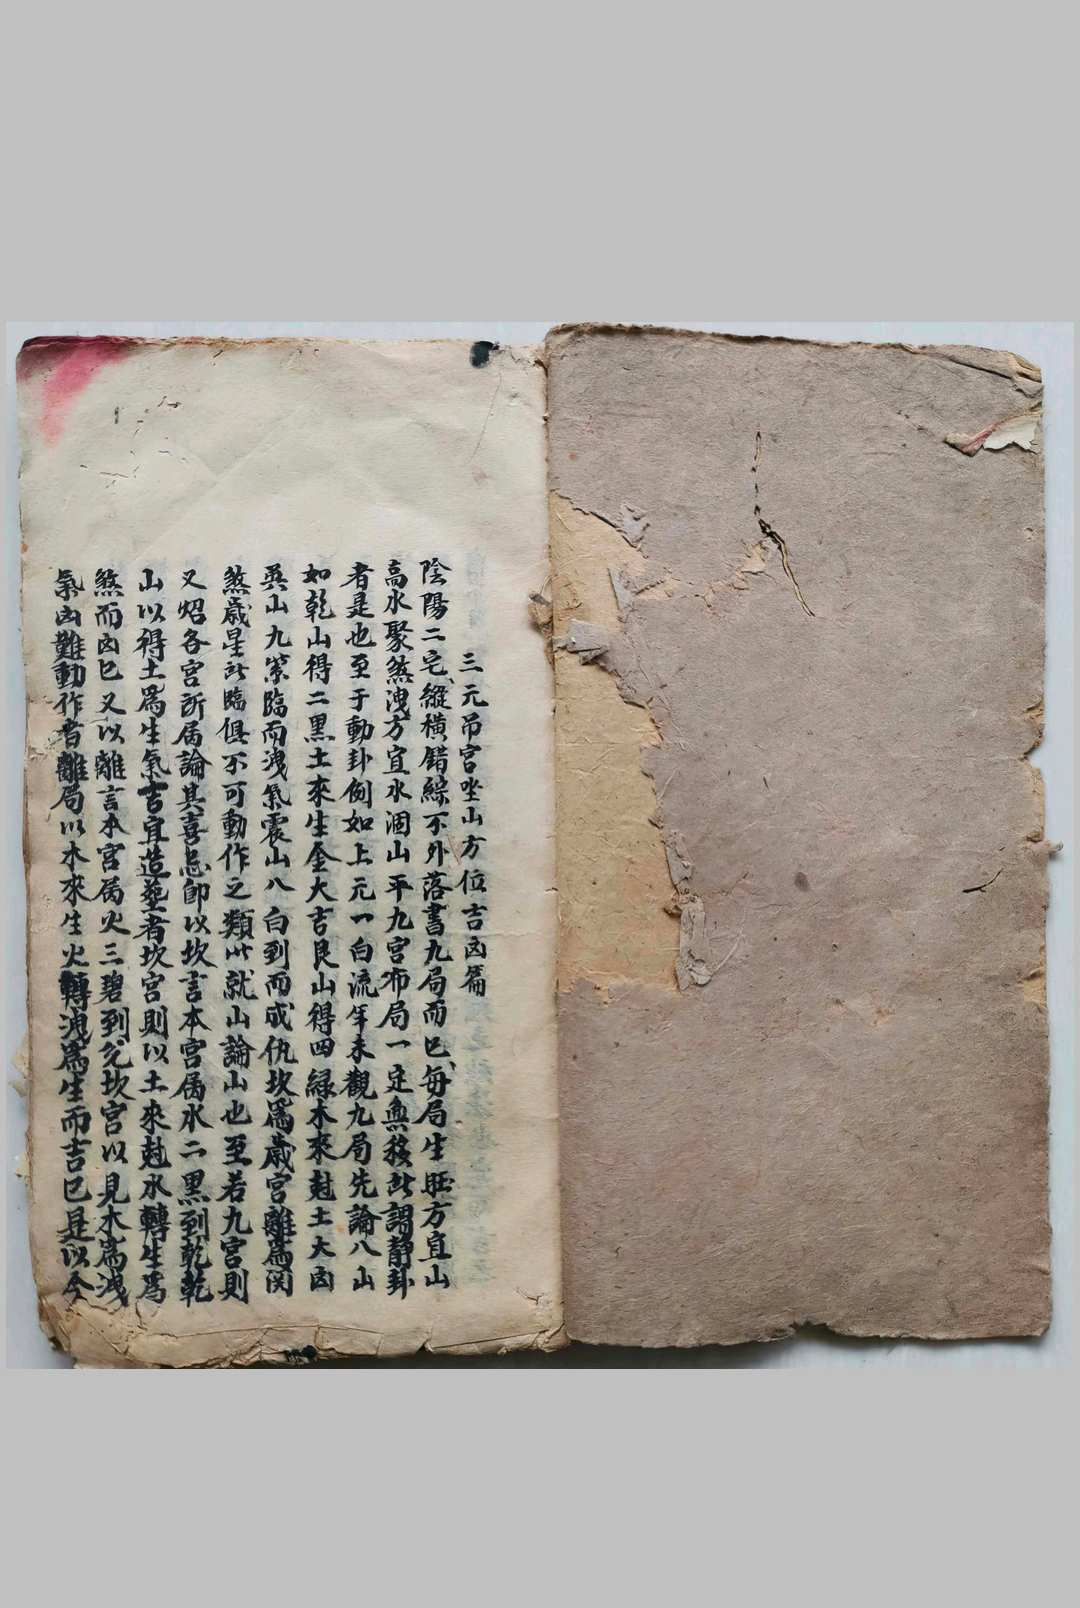 三元吊宫坐山方位吉凶篇
陰陽二宅縱横錯綜不外落書九局而已每局生旺方宜山
高水聚煞洩方宜水涸山平九宫布局一定無移此謂静卦
者是也至于動卦例如上元一白流年未觀九局先論八山
如乾山得二黑土來生金大吉艮山得四緑木來尅土大凶
巽山九紫臨而洩氣震山八白到而成仇坎爲歳宫離爲関
煞歳星所臨俱不可動作之類此就山論山也至若九宫則
又炤各宫所属論其喜忌即以坎言本宫属水二黑到乾乾
山以得土爲生氣吉宜造塟者坎宫則以土來尅水轉生爲
煞而凶已又以離言本宫属火三碧到兊坎宫以見木爲洩
氣凶難動作者離局以木來生火轉洩爲生而吉已是以今